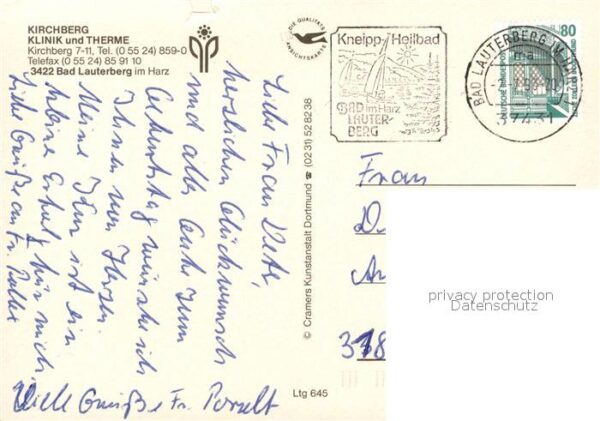 KIRCHBERG
KLINIK und THERME
Kirchberg 7-11, Tel. (0 55 24) 859-0
Telefax (0 55 24) 85 91 10
3422 Bad Lauterberg im Harz
DIE QUALITÄTS
ANSICHTSKARTE
Kneipp-Heilbad
BAD im Harz
LAUTER-
BERG
BAD LAUTERBERG IM HARZ 1
ma
37431
80
DEUTSCHE BUNDESPOST
Liebe Frau
herzlichen Glückwunsch
und alles Gute zum
Geburtstag wünsche ich
Ihnen von Herzen.
Meine Kur ist ein
Erholg für mich
Liebe Grüße an Fr.
Viele Grüße Fr. Porzelt
© Cramers Kunstanstalt Dortmund ☎ (0231) 52 82 38
Ltg 645
Frau
D
A
318
privacy protection
Datenschutz